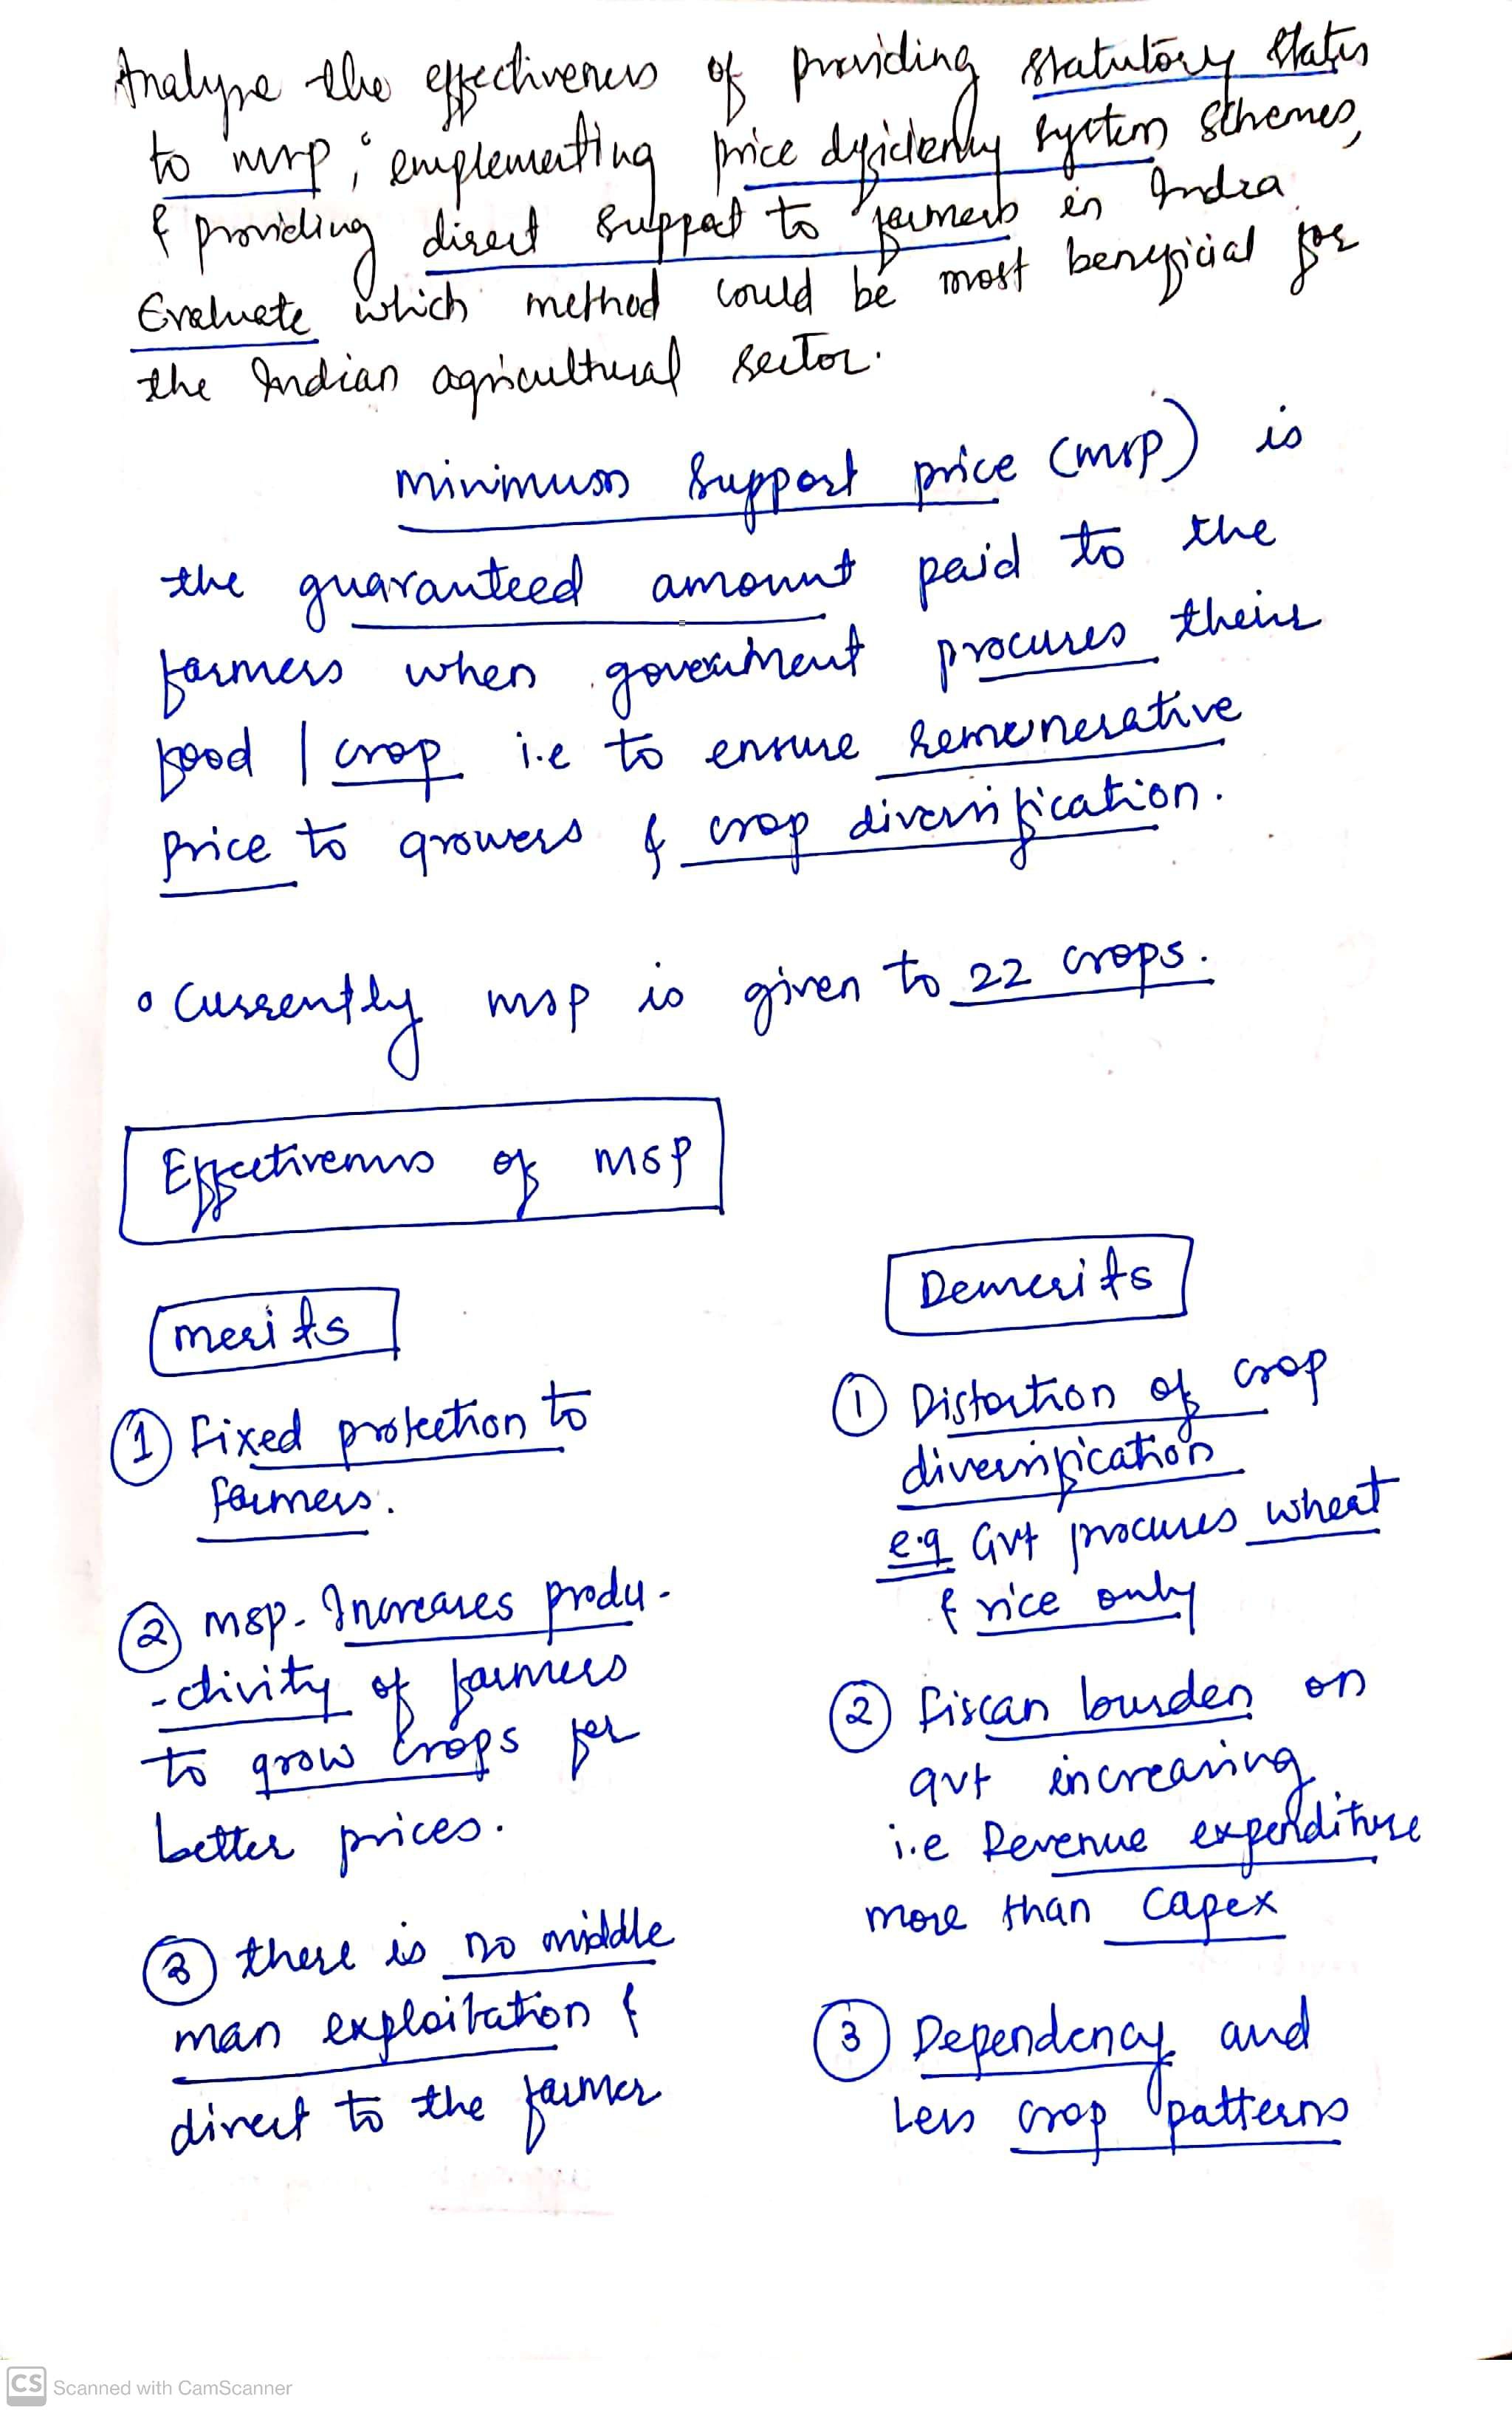 Analyse the effectiveness of providing statutory status
to msp, emplementing price dificiency system schemes,
& providing direct support to farmers in India.
Evaluate which method could be most beneficial for
the Indian agricultural sector.
minimum support price (msp) is
the guaranteed amount paid to the
farmers when government procures their
food / crop i.e to ensure remunerative
price to growers & crop diversification.
• Currently msp is given to 22 crops.
Effectiveness of MSP
merits
① Fixed protection to
farmers.
② msp - Increases produ-
-ctivity of farmers
to grow crops for
better prices.
③ there is no middle
man exploitation &
direct to the farmer
Demerits
① Distortion of crop
diversification
e.g Gvt procures wheat
& rice only
② Fiscan burden on
gvt increasing
i.e Revenue expenditure
more than capex
③ Dependency and
Less crop patterns
CS Scanned with CamScanner